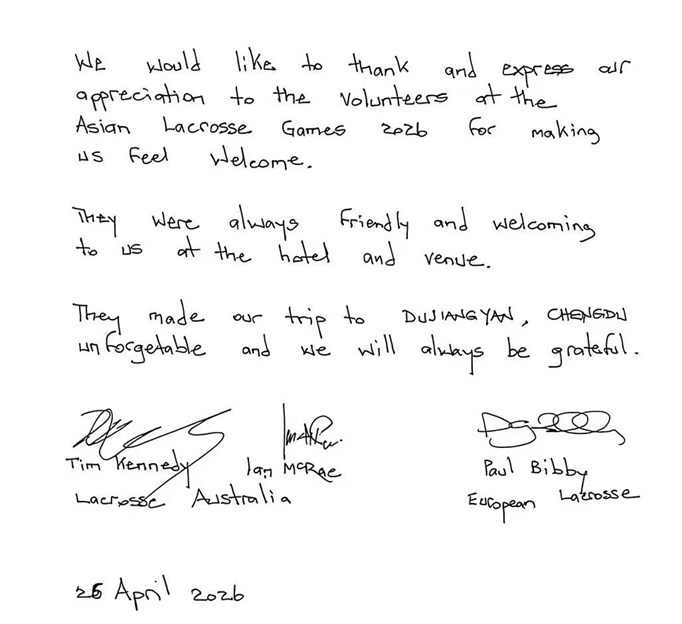 We would like to thank and express our
appreciation to the volunteers at the
Asian Lacrosse Games 2026 for making
us feel welcome.
They were always friendly and welcoming
to us at the hotel and venue.
They made our trip to DUJIANGYAN, CHENGDU
unforgetable and we will always be grateful.
Tim Kennedy Ian McRae Paul Bibby
Lacrosse Australia European Lacrosse
26 April 2026